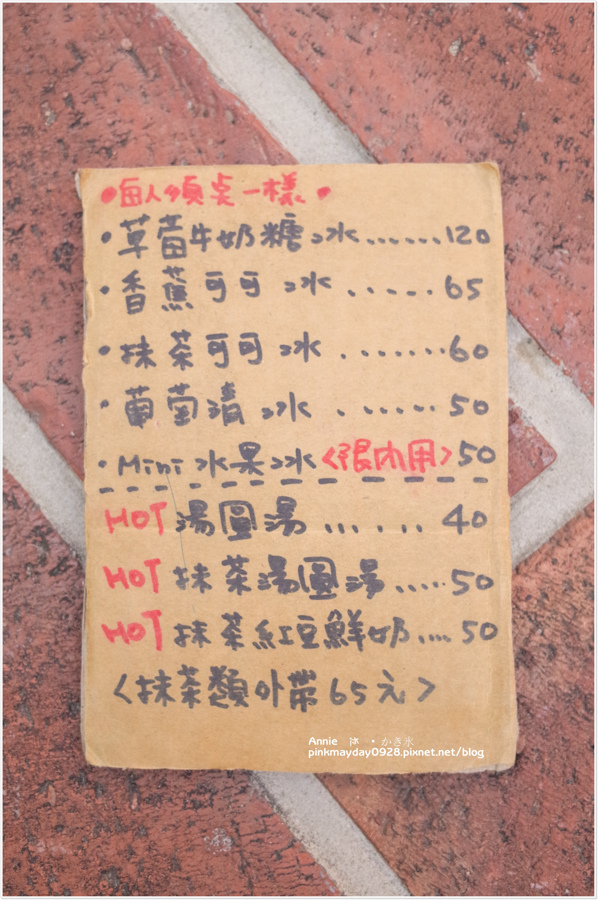 •每人須点一樣•
•草莓牛奶糖冰.......120
•香蕉可可 冰 ......65
•抹茶可可冰 ........60
•葡萄清 冰 .......50
•Mini 水果冰<限内用>50
HOT 湯圓湯 ......40
HOT 抹茶湯圓湯.....50
HOT 抹茶紅豆鮮奶....50
<抹茶類外帶65元>
Annie は • かき氷
pinkmayday0928.pixnet.net/blog